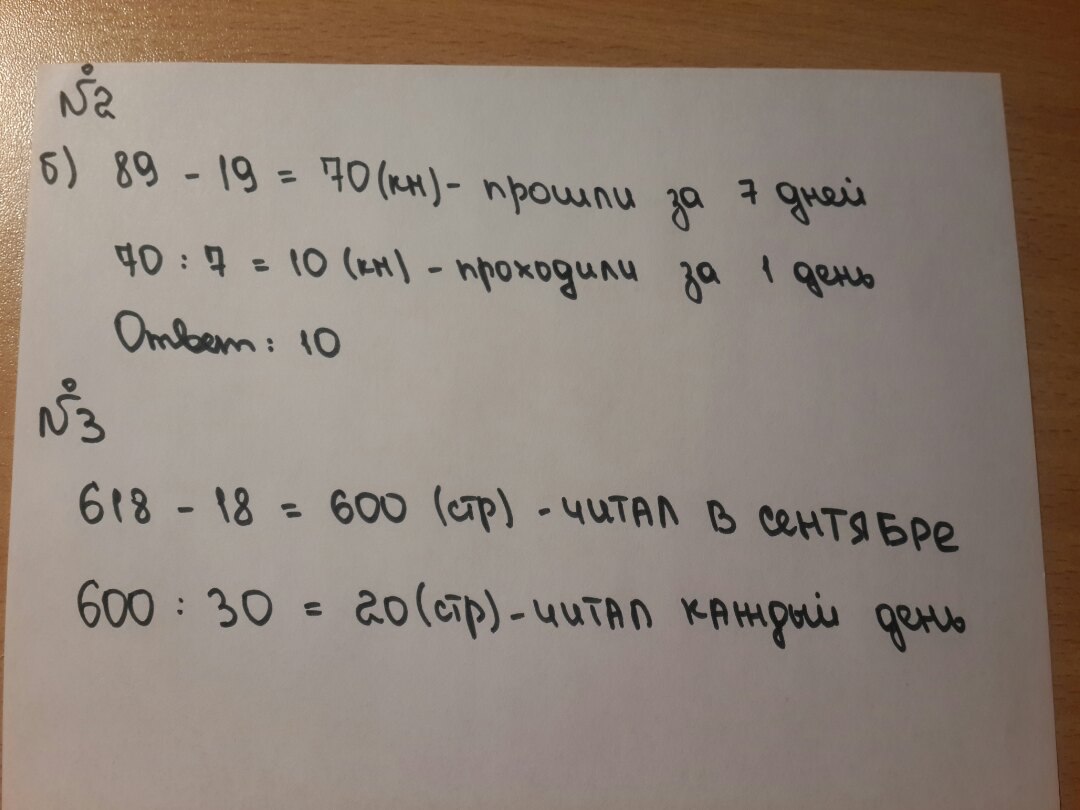 №2
б) 89 - 19 = 70 (кн) - прошли за 7 дней
70 : 7 = 10 (кн) - проходили за 1 день
Ответ: 10
№3
618 - 18 = 600 (стр) - читал в сентябре
600 : 30 = 20 (стр) - читал каждый день